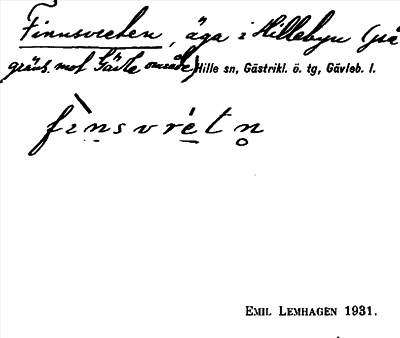 Finnsvreten, äga i Hillebyn (på
gräns mot Gävle område) Hille sn, Gästrikl. ö. tg, Gävleb. l.
fìn̠svrét n̥
EMIL LEMHAGEN 1931.